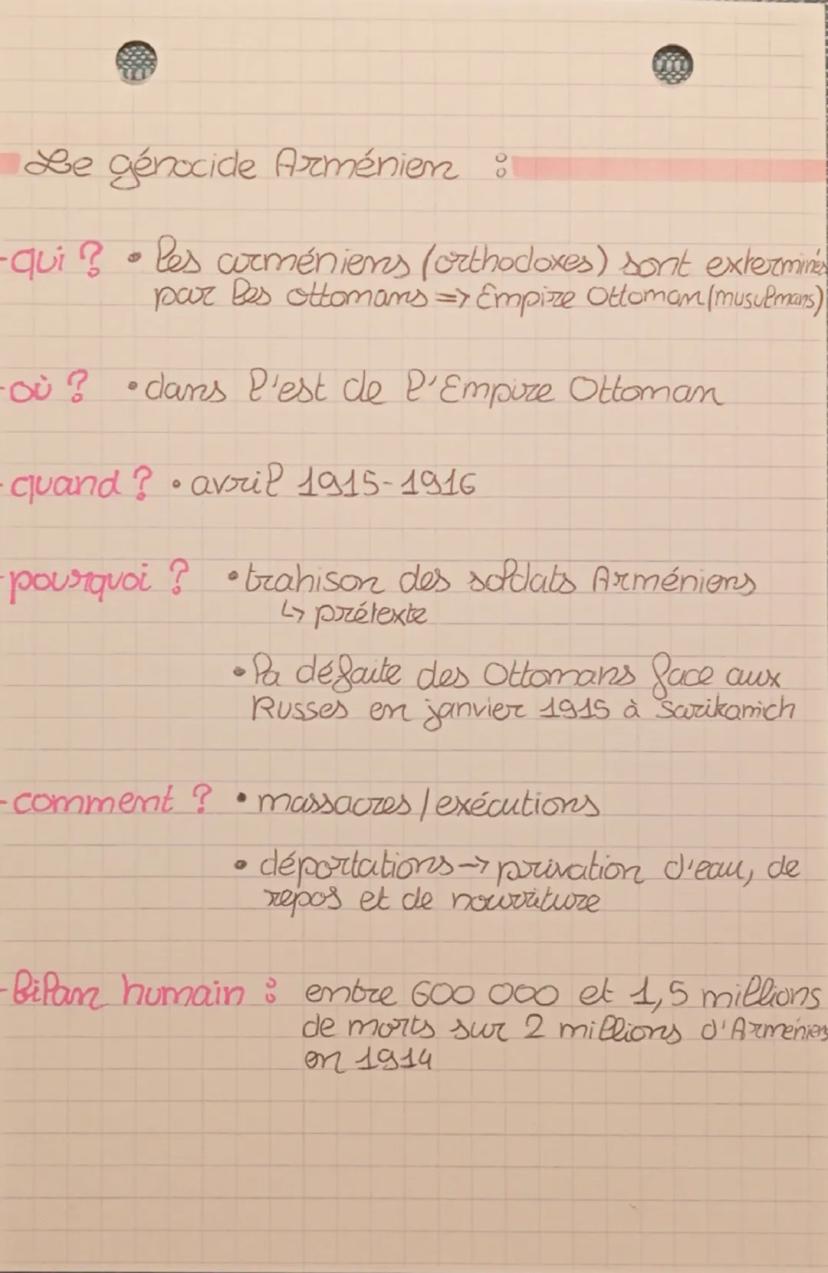 Le génocide Arménien :
-qui ? • les arméniens (orthodoxes) sont exterminés
par les ottomans => Empire Ottoman (musulmans)
-où ? • dans l'est de l'Empire Ottoman
-quand ? • avril 1915-1916
-pourquoi ? • trahison des soldats Arméniens
↳ prétexte
• la défaite des Ottomans face aux
Russes en janvier 1915 à Sarikamich
-comment ? • massacres / exécutions
• déportations → privation d'eau, de
repos et de nourriture
-Bilan humain : entre 600 000 et 1,5 millions
de morts sur 2 millions d'Arméniens
en 1914